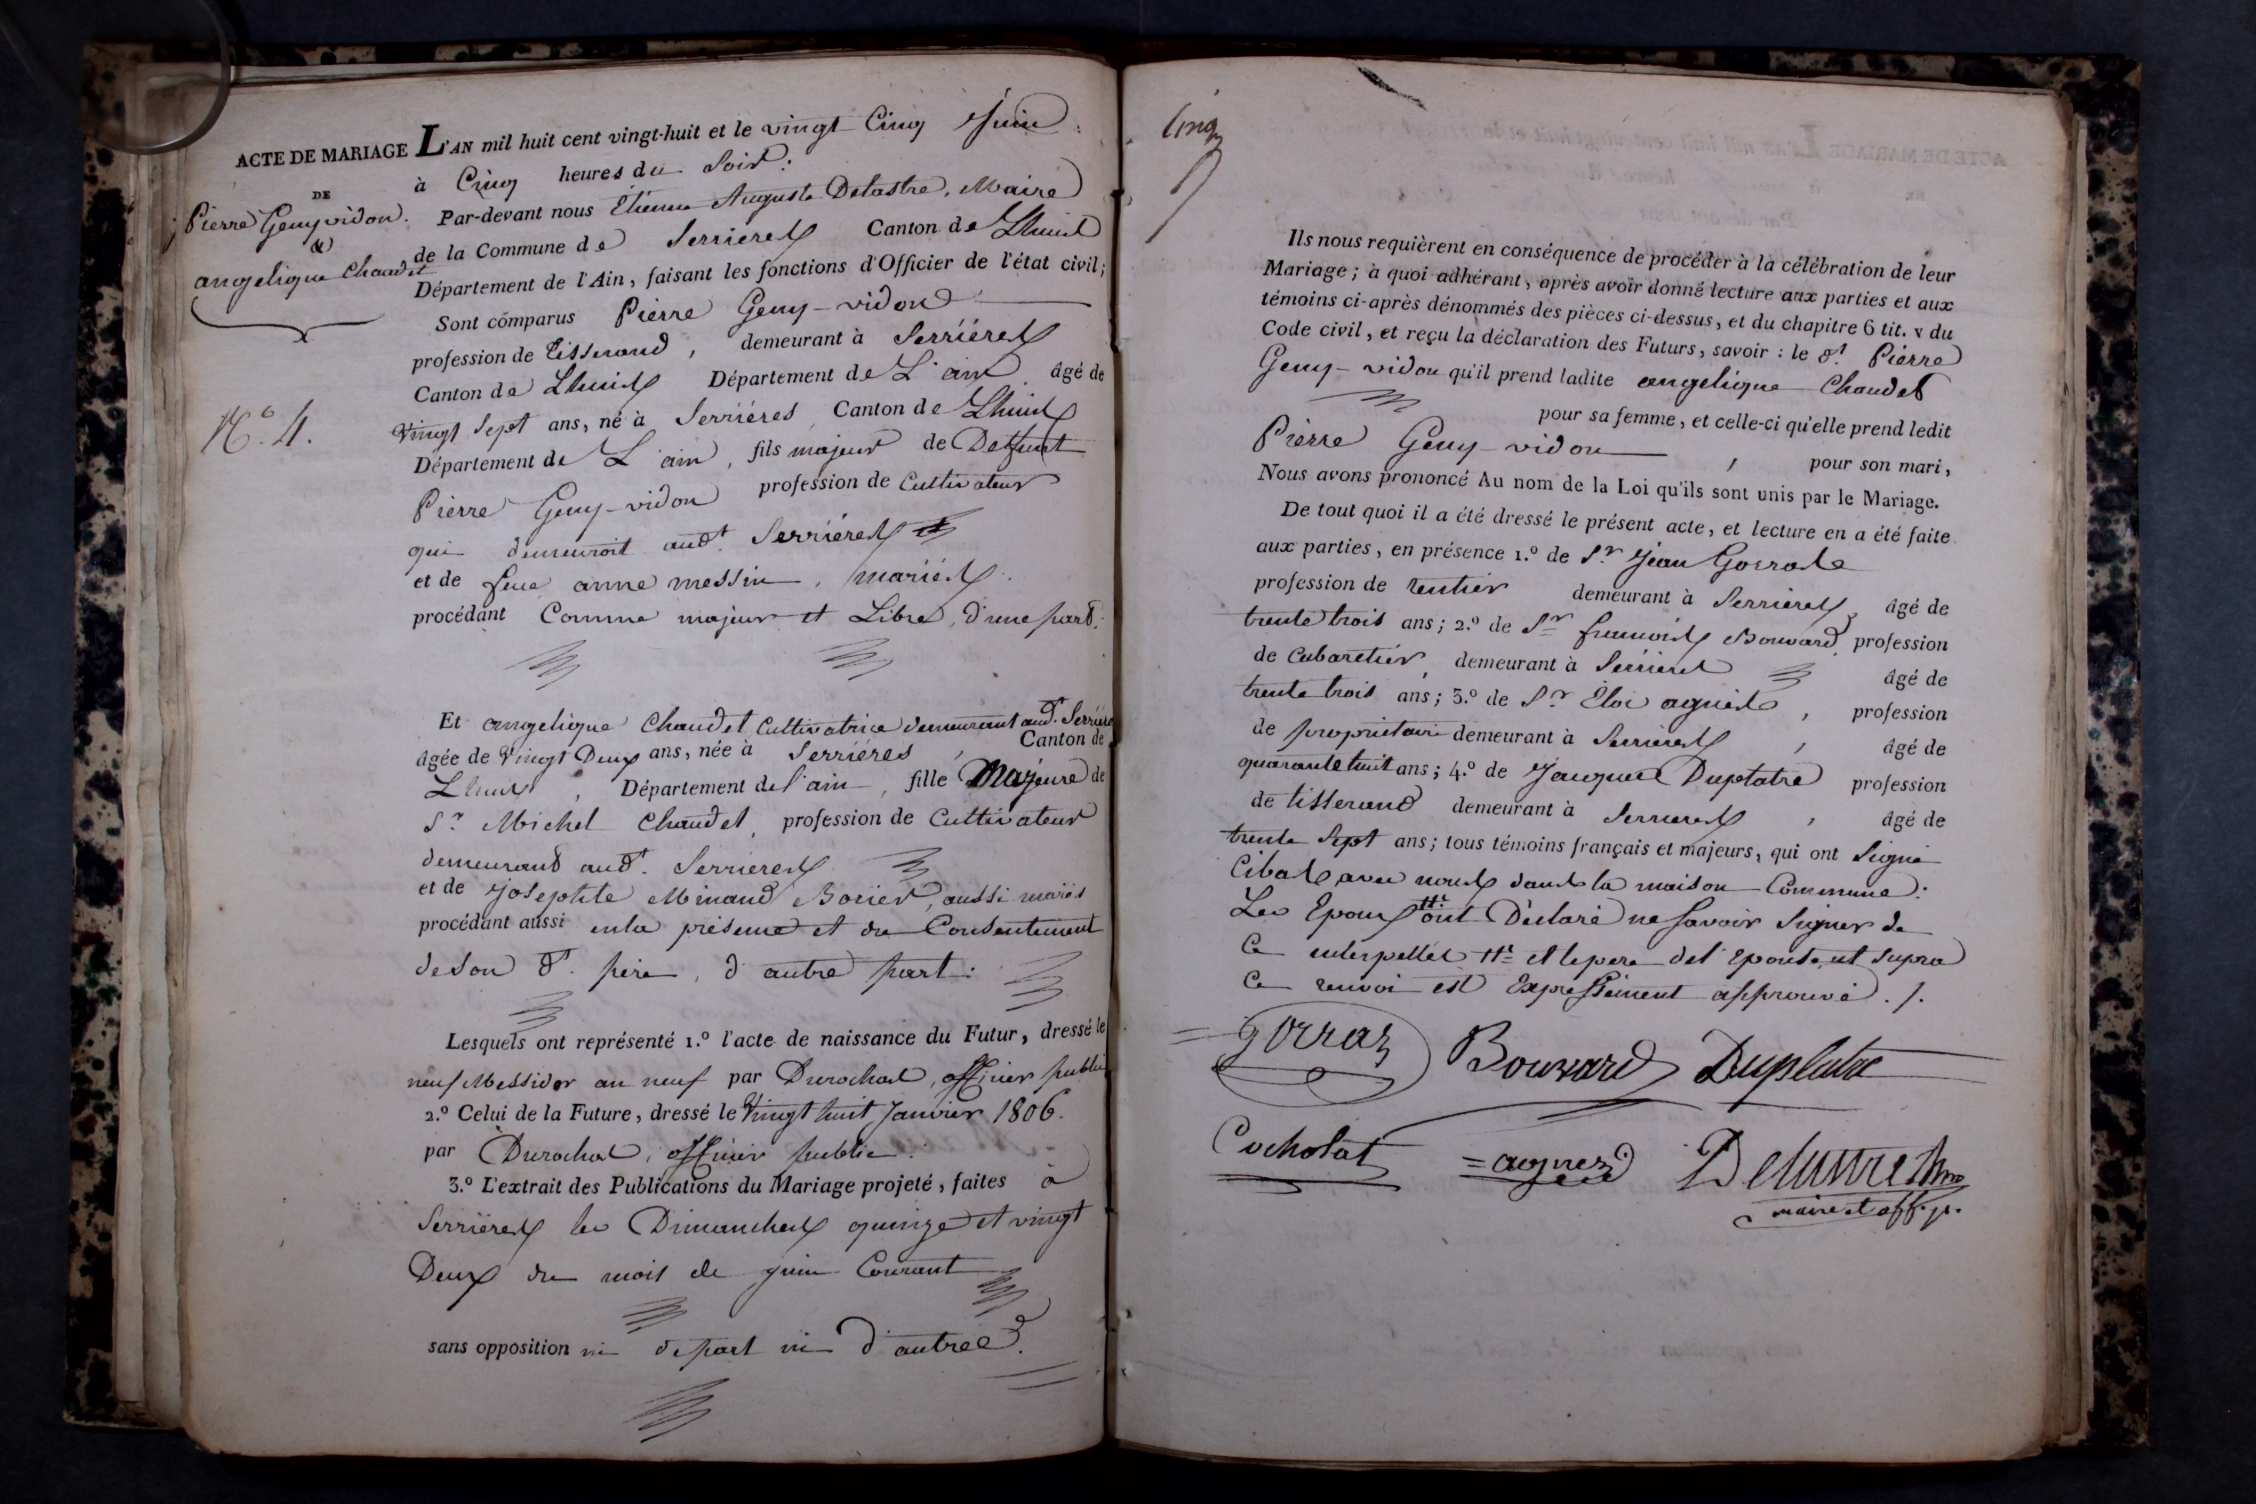 ACTE DE MARIAGE
DE
Pierre Geny-vidon.
&
angelique Chaudet
N.° 4.
L'AN mil huit cent vingt-huit et le vingt Cinq Juin
à Cinq heures du Soir.
Par-devant nous Etienne Auguste Delastre, Maire
de la Commune de Serrieres Canton de Lhuis
Département de l'Ain, faisant les fonctions d'Officier de l'état civil;
Sont comparus Pierre Geny-vidon
profession de tisserand, demeurant à Serriéres
Canton de Lhuis Département de L'ain âgé de
vingt Sept ans, né à Serriéres Canton de Lhuis
Département de L'ain, fils majeur de Deffunt
Pierre Geny-vidon profession de Cultivateur
qui demeuroit aud.t Serriéres
et de feue anne messin, mariés.
procédant Comme majeur et Libre, d'une part.
Et angelique Chaudet Cultivatrice demeurant aud.t Serriéres
âgée de Vingt Deux ans, née à Serriéres, Canton de
Lhuis, Département de l'ain, fille Majeure de
S.r Michel Chaudet, profession de Cultivateur
demeurand aud.t Serrieres
et de Josephte Minand Borier, aussi mariés
procédant aussi en la présence et du Consentement
de son d.t père, d'autre part:
Lesquels ont représenté 1.° l'acte de naissance du Futur, dressé le
neuf Messidor an neuf par Durochat, officier public
2.° Celui de la Future, dressé le Vingt huit Janvier 1806.
par Durochat, officier public.
3.° L'extrait des Publications du Mariage projeté, faites à
Serriéres les Dimanches quinze et vingt
Deux du mois de juin Courant
sans opposition ni de part ni d'autre.
Cinq
Ils nous requièrent en conséquence de procéder à la célébration de leur
Mariage; à quoi adhérant, après avoir donné lecture aux parties et aux
témoins ci-après dénommés des pièces ci-dessus, et du chapitre 6 tit. v du
Code civil, et reçu la déclaration des Futurs, savoir: le d.t Pierre
Geny-vidon qu'il prend ladite angelique Chaudet
pour sa femme, et celle-ci qu'elle prend ledit
Pierre Geny-vidon, pour son mari,
Nous avons prononcé Au nom de la Loi qu'ils sont unis par le Mariage.
De tout quoi il a été dressé le présent acte, et lecture en a été faite
aux parties, en présence 1.° de S.r Jean
profession de rentier demeurant à Serrieres, âgé de
trente trois ans; 2.° de S.r francois Bouvard, profession
de Cabaretier, demeurant à Serrieres âgé de
trente trois ans; 3.° de S.r Eloi, profession
de propriétaire demeurant à Serrieres, âgé de
quarante huit ans; 4.° de Jacques Duplatre profession
de tisserand demeurant à Serrieres, âgé de
trente Sept ans; tous témoins français et majeurs, qui ont Signé
avec nous dans la maison Commune:
Les Epoux ont Déclaré ne Savoir Signer de
Ce interpellés et le pere de l'Epouse, ut supra
Ce renvoi est Expressément approuvé./.
gorraz
Bouvard
Duplatre
Cocholat
= agnes
Delastre
maire et off. p.